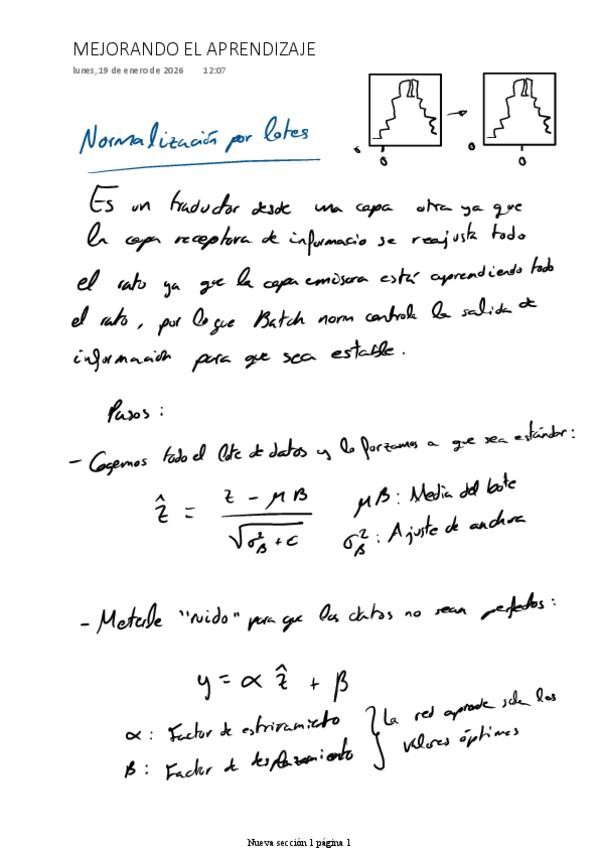 MEJORANDO EL APRENDIZAJE
lunes, 19 de enero de 2026 12:07
0 0 0
Normalización por lotes
Es un traductor desde una capa otra ya que
la capa receptora de informacio se reajusta todo
el rato ya que la capa emisora está aprendiendo todo
el rato, por lo que Batch norm controla la salida de
información para que sea estable.
Pasos:
- Cogemos todo el lote de datos y lo forzamos a que sea estándar:
ẑ = (z - μB) / √(σ²_B + C)
μB: Media del lote
σ²_B: Ajuste de anchura
- Meterle "ruido" para que los datos no sean perfectos:
y = α ẑ + β
α: Factor de estiramieto
β: Factor de desplazamiento
} La red aprende sola los
valores óptimos
Nueva sección 1 página 1